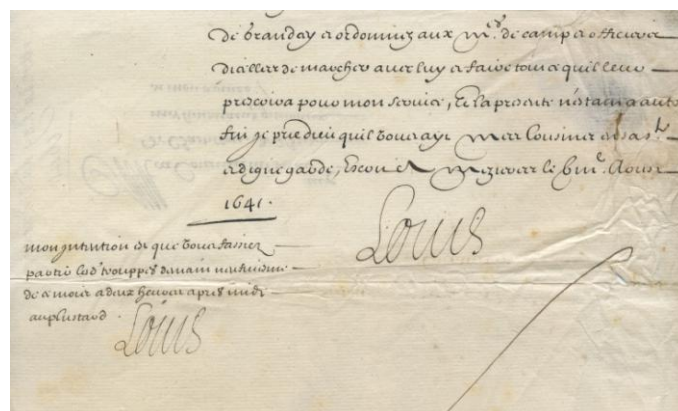 de branday et ordonniez aux Mrs. de camp et officiers
d'iceller de marcher avec luy et faire tout ce quil leur
prescrira pour mon service, Et la presente n'estant a autre
fin je prie dieu quil vous aye Mes Cousins en sa ste.
et digne garde, Escrit a Mezieres le me. Aoust
1641.
Louis
mon intention est que vous faisiez
partir lesd. trouppes demain neufviesme
de ce mois a deux heures apres midy
au plus tard.
Louis